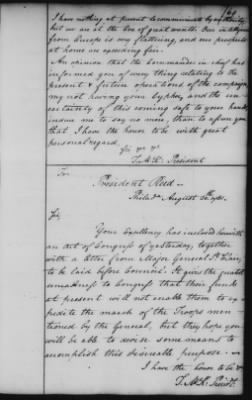 169
I have nothing at present to communicate by anything
but we are at the Eve of great events. Our intelligence
from Europe is very flattering, and our prospects
at home on expanding fair.
An opinion that the Commander in chief has
informed you of every thing relating to the
present & future operations of the campaign
my not having your Cypher, and the un-
certainty of this coming safe to your hands,
induce me to say no more, than to assure you
that I have the honor to be with great
personal regard.
T. McK. President
President Reed —
Philada. August
Sir,
Your Excellency has inclosed herewith
an Act of Congress of yesterday, together
with a letter from Major General St. Clair,
to be laid before Council. It gives the greatest
uneasiness to Congress that their funds
at present will not enable them to ex-
pedite the march of the Troops men-
tioned by the General, but they hope you
will be able to devise some means to
accomplish this desireable purpose. —
I have the honor to be &
T. McK. Presidt.